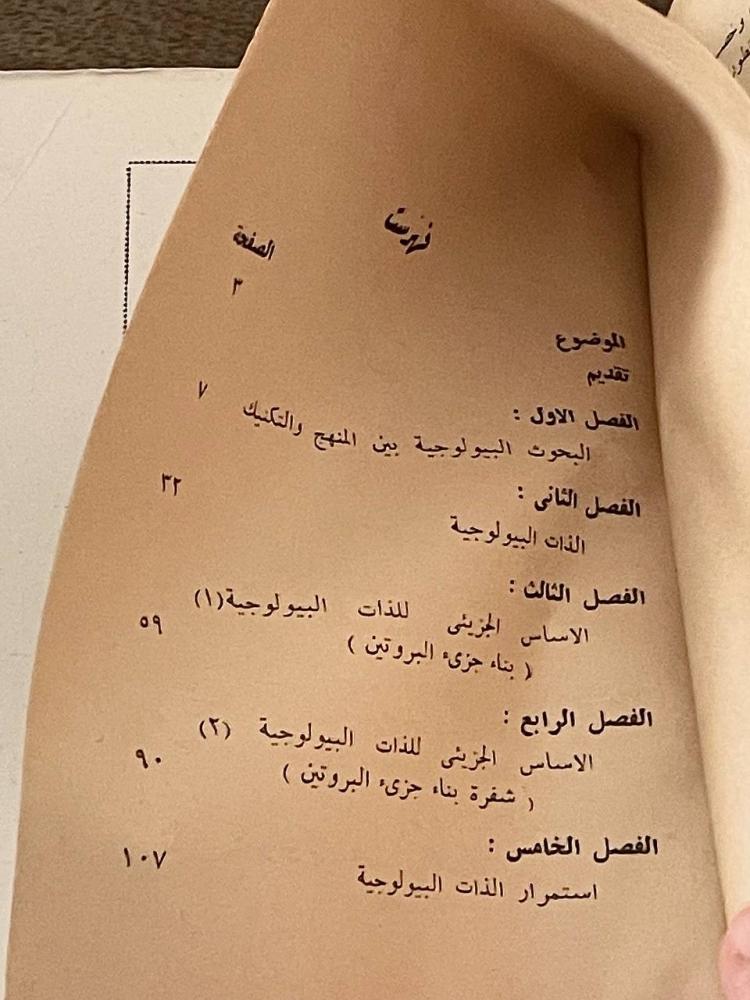 فهرست
الصفحة
٣
الموضوع
تقديم
الفصل الاول :
البحوث البيولوجية بين المنهج والتكنيك ٧
الفصل الثانى :
الذات البيولوجية ٣٢
الفصل الثالث :
الاساس الجزيئى للذات البيولوجية (١)
( بناء جزىء البروتين ) ٥٩
الفصل الرابع :
الاساس الجزيئى للذات البيولوجية (٢)
( شفرة بناء جزىء البروتين ) ٩٠
الفصل الخامس :
استمرار الذات البيولوجية ١٠٧